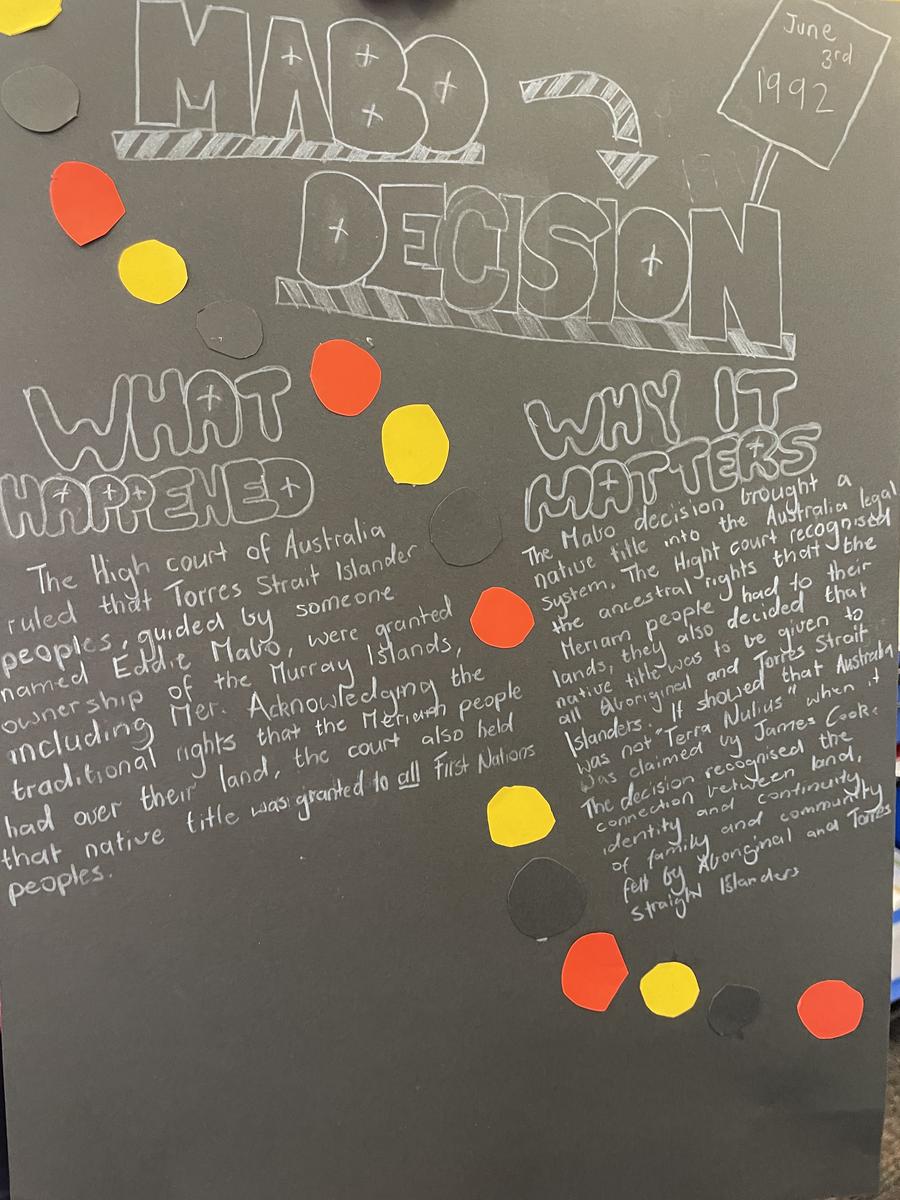 MABO
June
3rd
1992
DECISION
WHAT
HAPPENED
The High court of Australia
ruled that Torres Strait Islander
peoples, guided by someone
named Eddie Mabo, were granted
ownership of the Murray Islands,
including Mer. Acknowledging the
traditional rights that the Meriam people
had over their land, the court also held
that native title was granted to all First Nations
peoples.
WHY IT
MATTERS
The Mabo decision brought a
native title into the Australia legal
system. The Hight court recognised
the ancestral rights that the
Meriam people had to their
lands, they also decided that
native title was to be given to
all Aboriginal and Torres Strait
Islanders. It showed that Australia
was not "Terra Nulius" when it
was claimed by James Cook.
The decision recognised the
connection between land,
identity and continuity
of family and community
felt by Aboriginal and Torres
straight Islanders